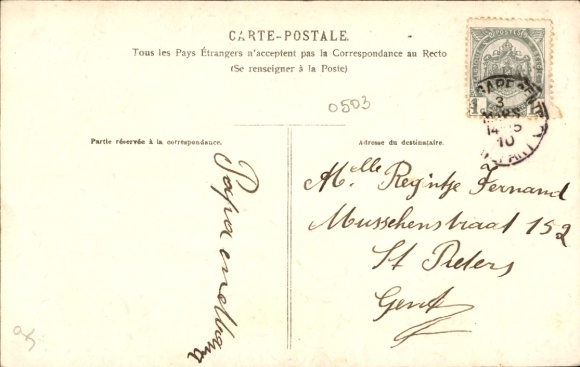 CARTE-POSTALE.
Tous les Pays Étrangers n'acceptent pas la Correspondance au Recto
(Se renseigner à la Poste)
0503
Partie réservée à la correspondance.
Adresse du destinataire.
Papa en
Melle Regintje Fernand
Musschenstraat 152
St Pieters
Gent
3
14-15
10
1